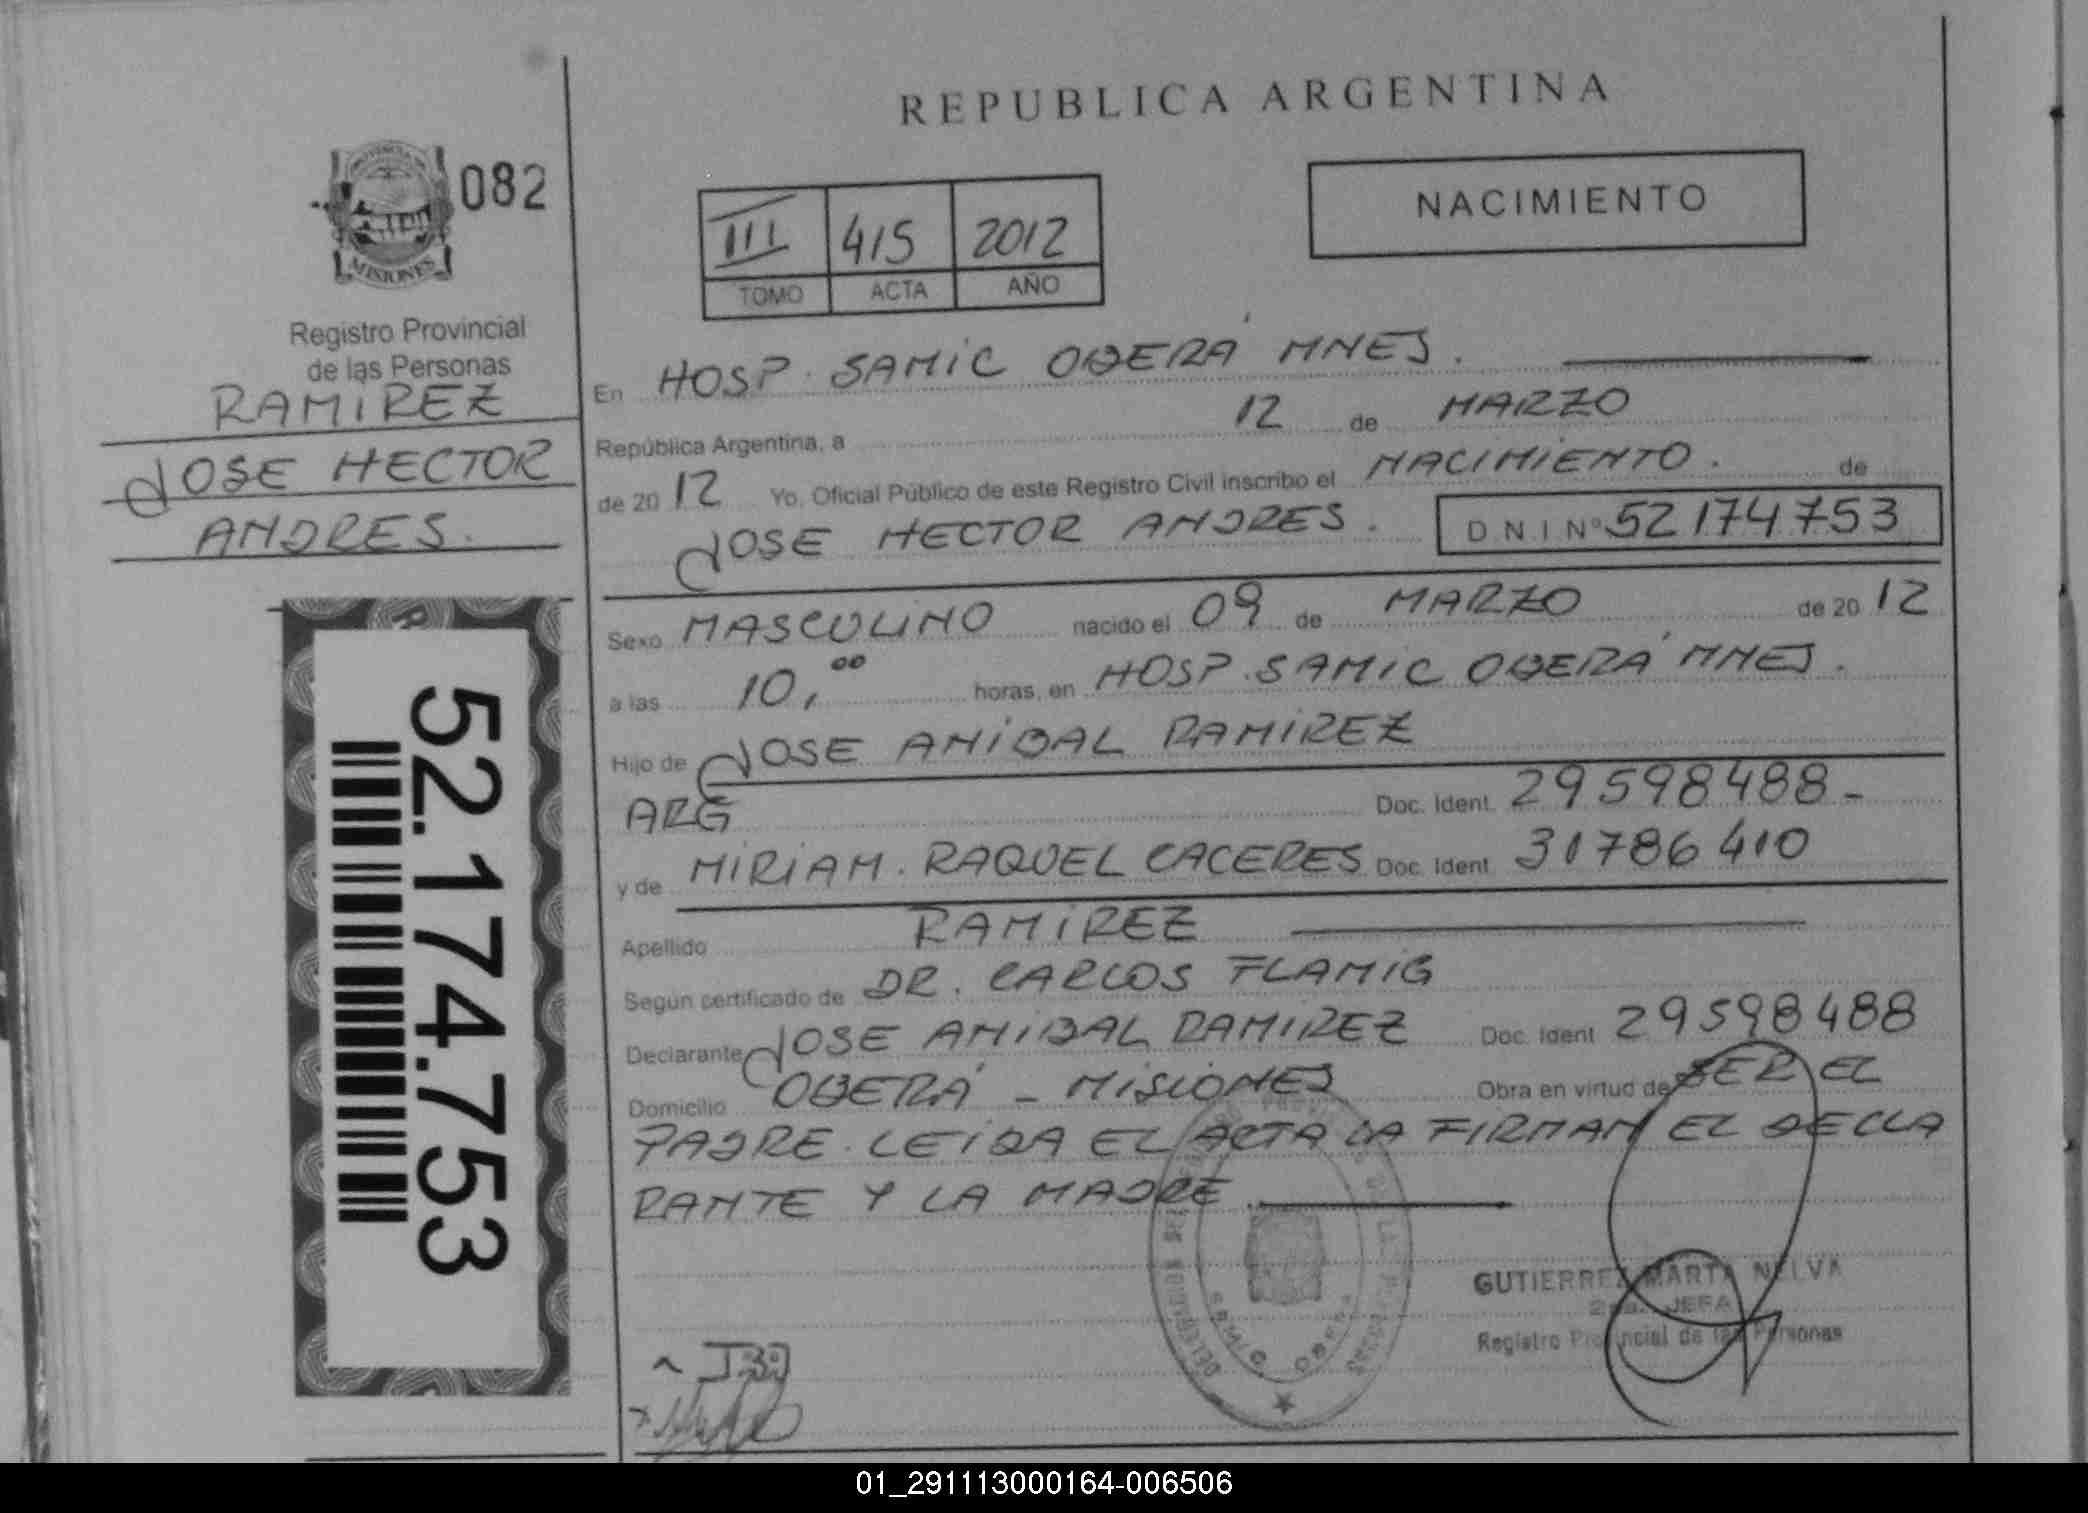 REPUBLICA ARGENTINA
082
MISIONES
Registro Provincial
de las Personas
RAMIREZ
JOSE HECTOR
ANDRES.
52.174.753
III 415 2012
TOMO ACTA AÑO
NACIMIENTO
En HOSP. SAMIC OBERÁ MNES.
República Argentina, a 12 de MARZO
de 2012 Yo, Oficial Público de este Registro Civil inscribo el NACIMIENTO. de
JOSE HECTOR ANDRES. D.N.I Nº 52174753
Sexo MASCULINO nacido el 09 de MARZO de 2012
a las 10,00 horas, en HOSP. SAMIC OBERÁ MNES.
Hijo de JOSE ANIBAL RAMIREZ
ARG Doc. Ident. 29598488-
y de MIRIAM. RAQUEL CACERES Doc. Ident. 31786410
Apellido RAMIREZ
Según certificado de DR. CARLOS FLAMIG
Declarante JOSE ANIBAL RAMIREZ Doc. Ident 29598488
Domicilio OBERÁ - MISIONES Obra en virtud de SER EL
PADRE. LEIDA EL ACTA LA FIRMAN EL DECLA
RANTE Y LA MADRE
GUTIERREZ MARTA NELVA
2da. JEFA
Registro Provincial de las Personas
01_291113000164-006506